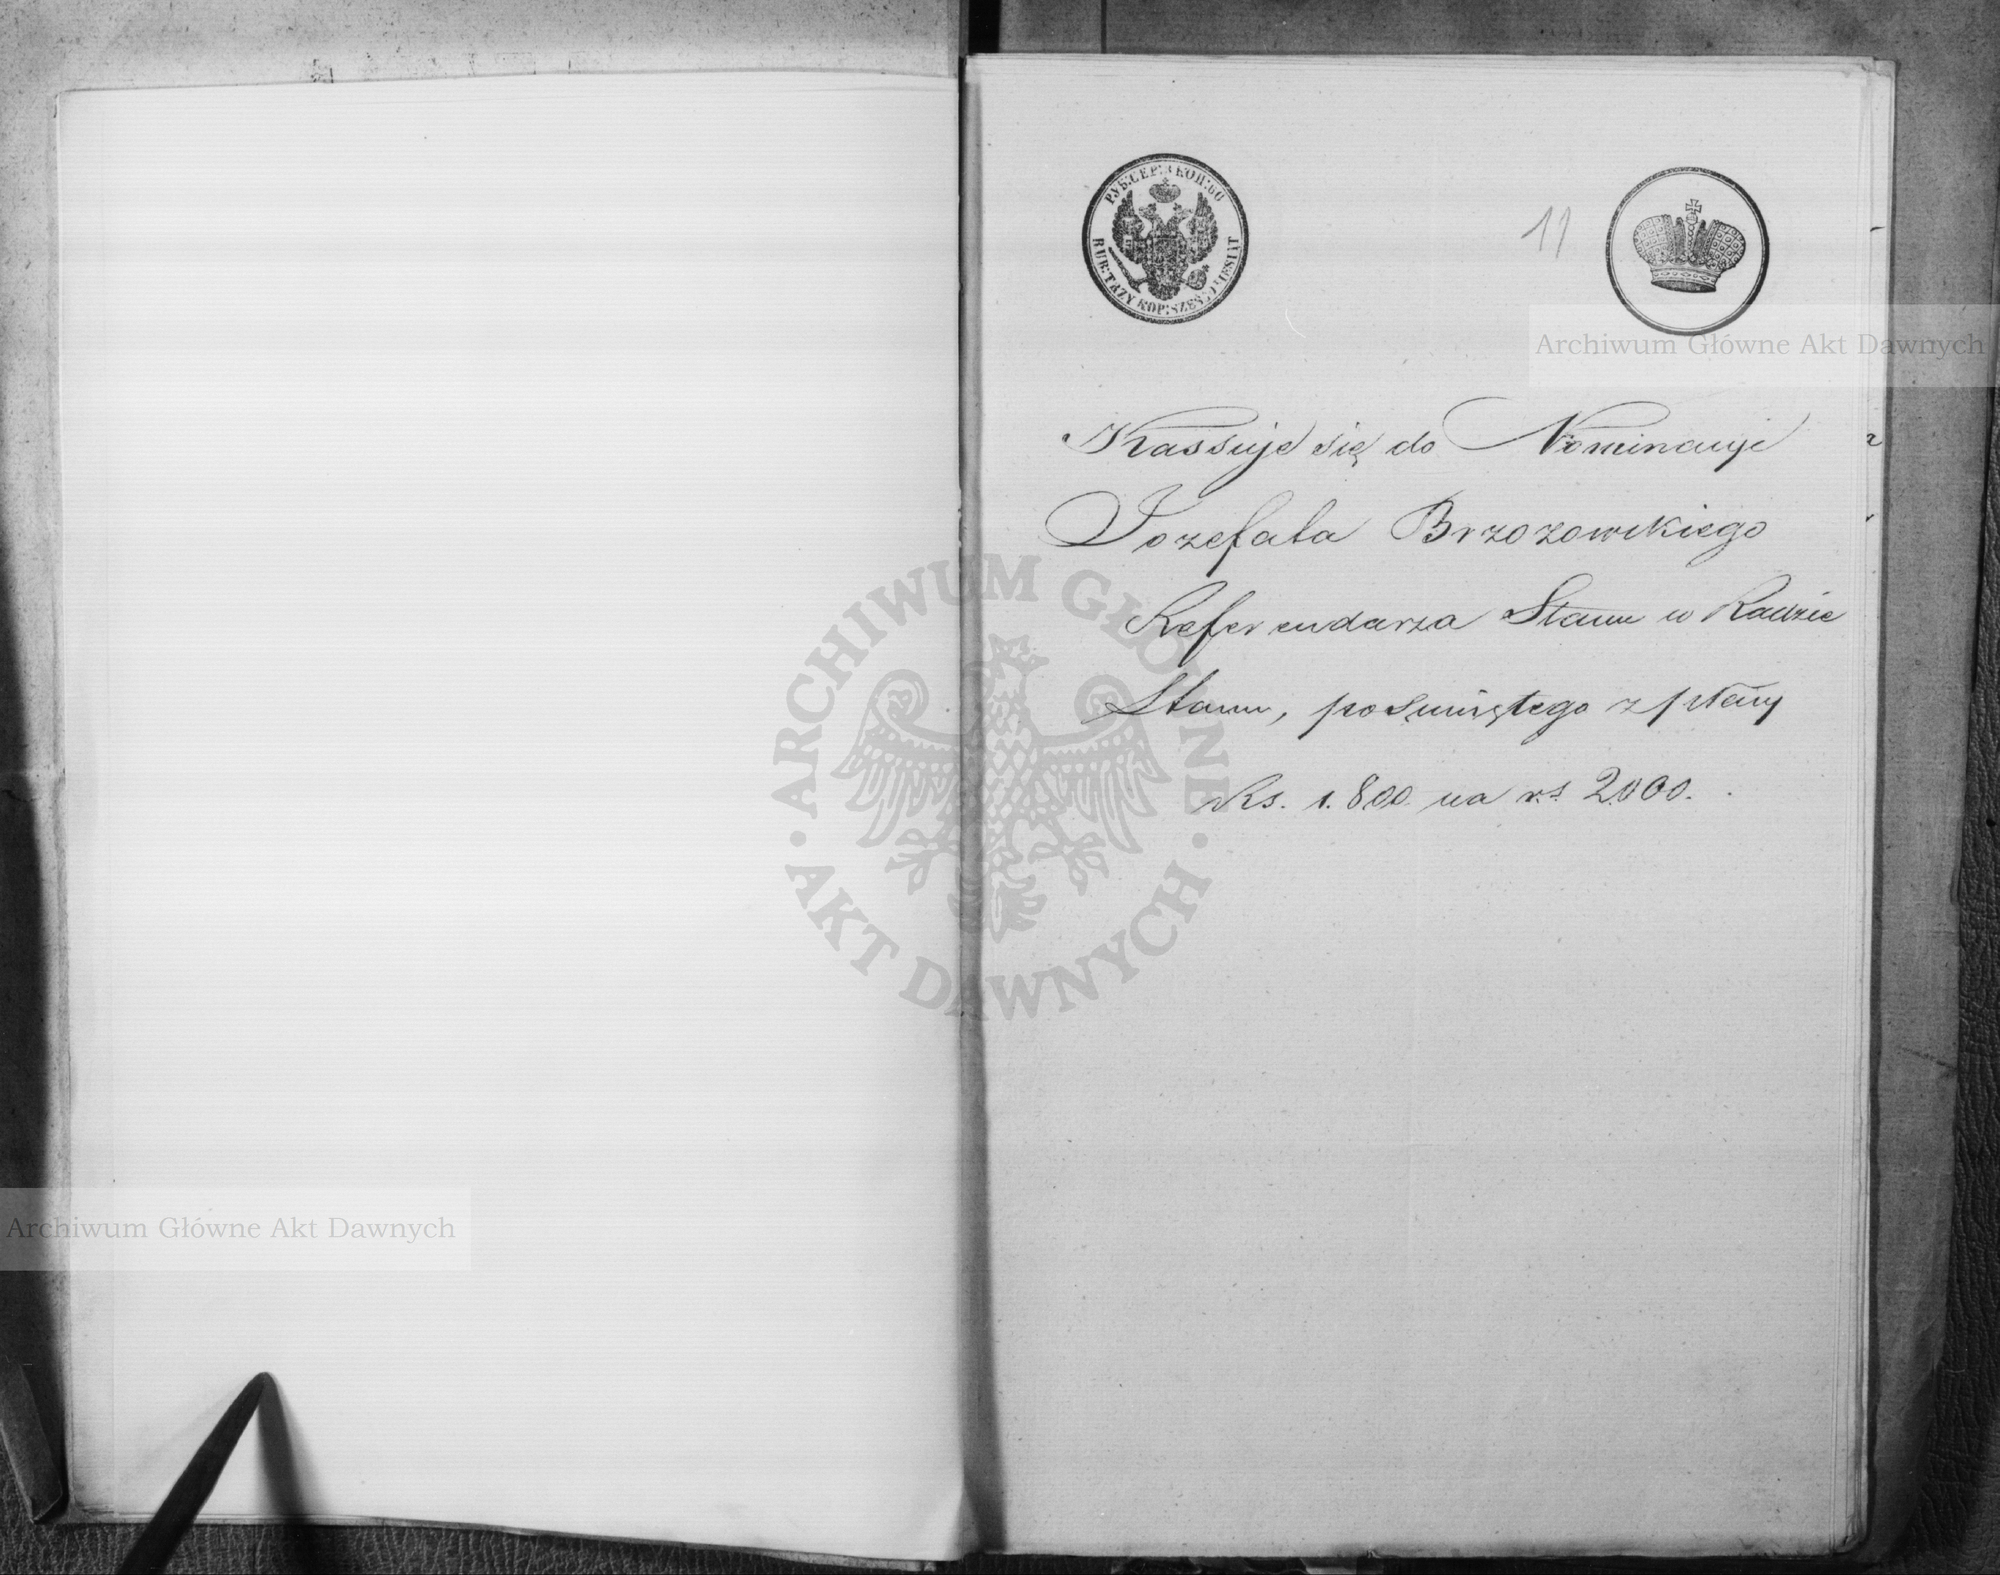 РУБ:СЕР: 3 КОП: 60
RUB: TRZY KOP: SZEŚĆDZIESIĄT
11
Archiwum Główne Akt Dawnych
Kassuje się do Nominacyi
Jozefata Brzozowskiego
Referendarza Stanu w Radzie
Stanu, posuniętego z płacy
Rs. 1.800 na rs 2000.
ARCHIWUM GŁÓWNE AKT DAWNYCH
Archiwum Główne Akt Dawnych